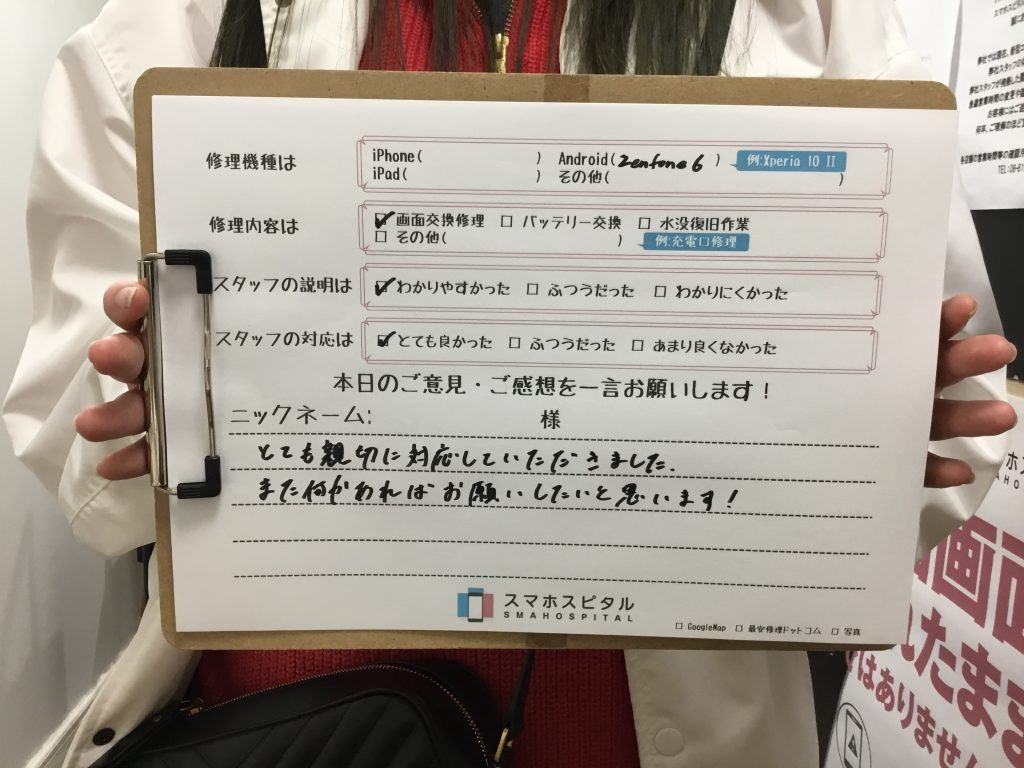 修理機種は
iPhone( ) Android(Zenfone6) 例:Xperia 10 II
iPad( ) その他( )
修理内容は
画面交換修理 □ バッテリー交換 □ 水没復旧作業
□ その他( ) 例:充電口修理
スタッフの説明は
わかりやすかった □ ふつうだった □ わかりにくかった
スタッフの対応は
とても良かった □ ふつうだった □ あまり良くなかった
本日のご意見・ご感想を一言お願いします!
ニックネーム: 様
とても親切に対応していただきました.
また何かあればお願いしたいと思います!
スマホスピタル
SMAHOSPITAL
□ GoogleMap □ 最安修理ドットコム □ 写真
弊社では現在、新型コ
画面
れたまま
はありません